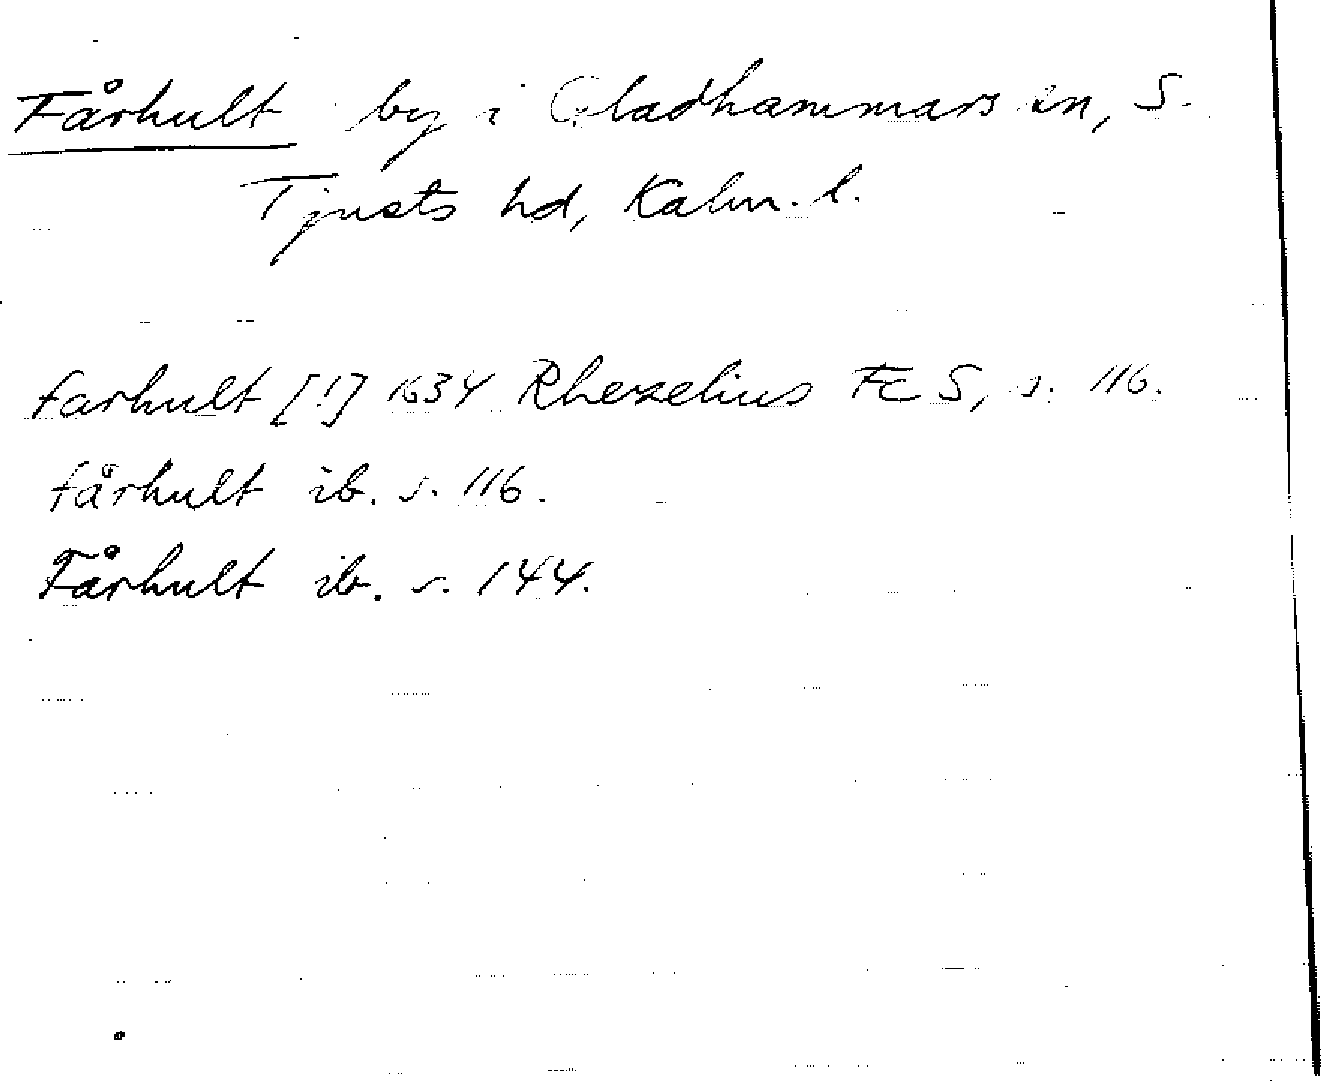 Fårhult by i Gladhammars sn, S.
Tjusts hd, Kalm. l.
farhult [!] 1634 Rhezelius FES, s. 116.
fårhult ib. s. 116.
Fårhult ib. s. 144.